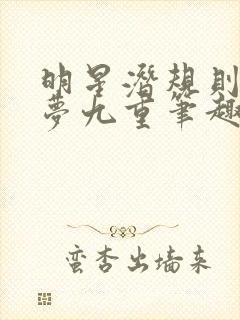 明星潜规则
梦九重笔趣
蛮杏出墙来